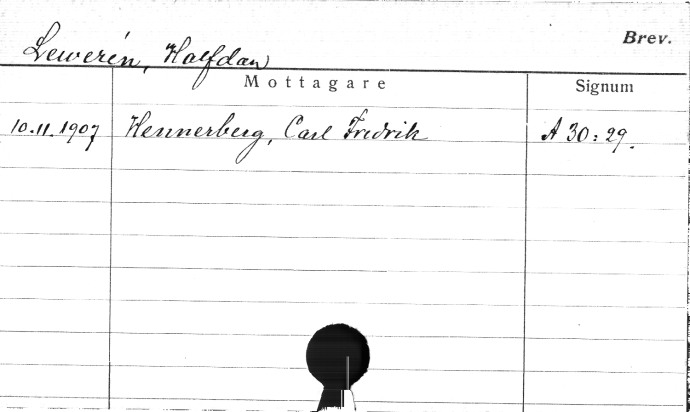 Brev.
Lewerén, Halfdan
Mottagare Signum
10.11.1907 Hennerberg, Carl Fredrik A 30:29.